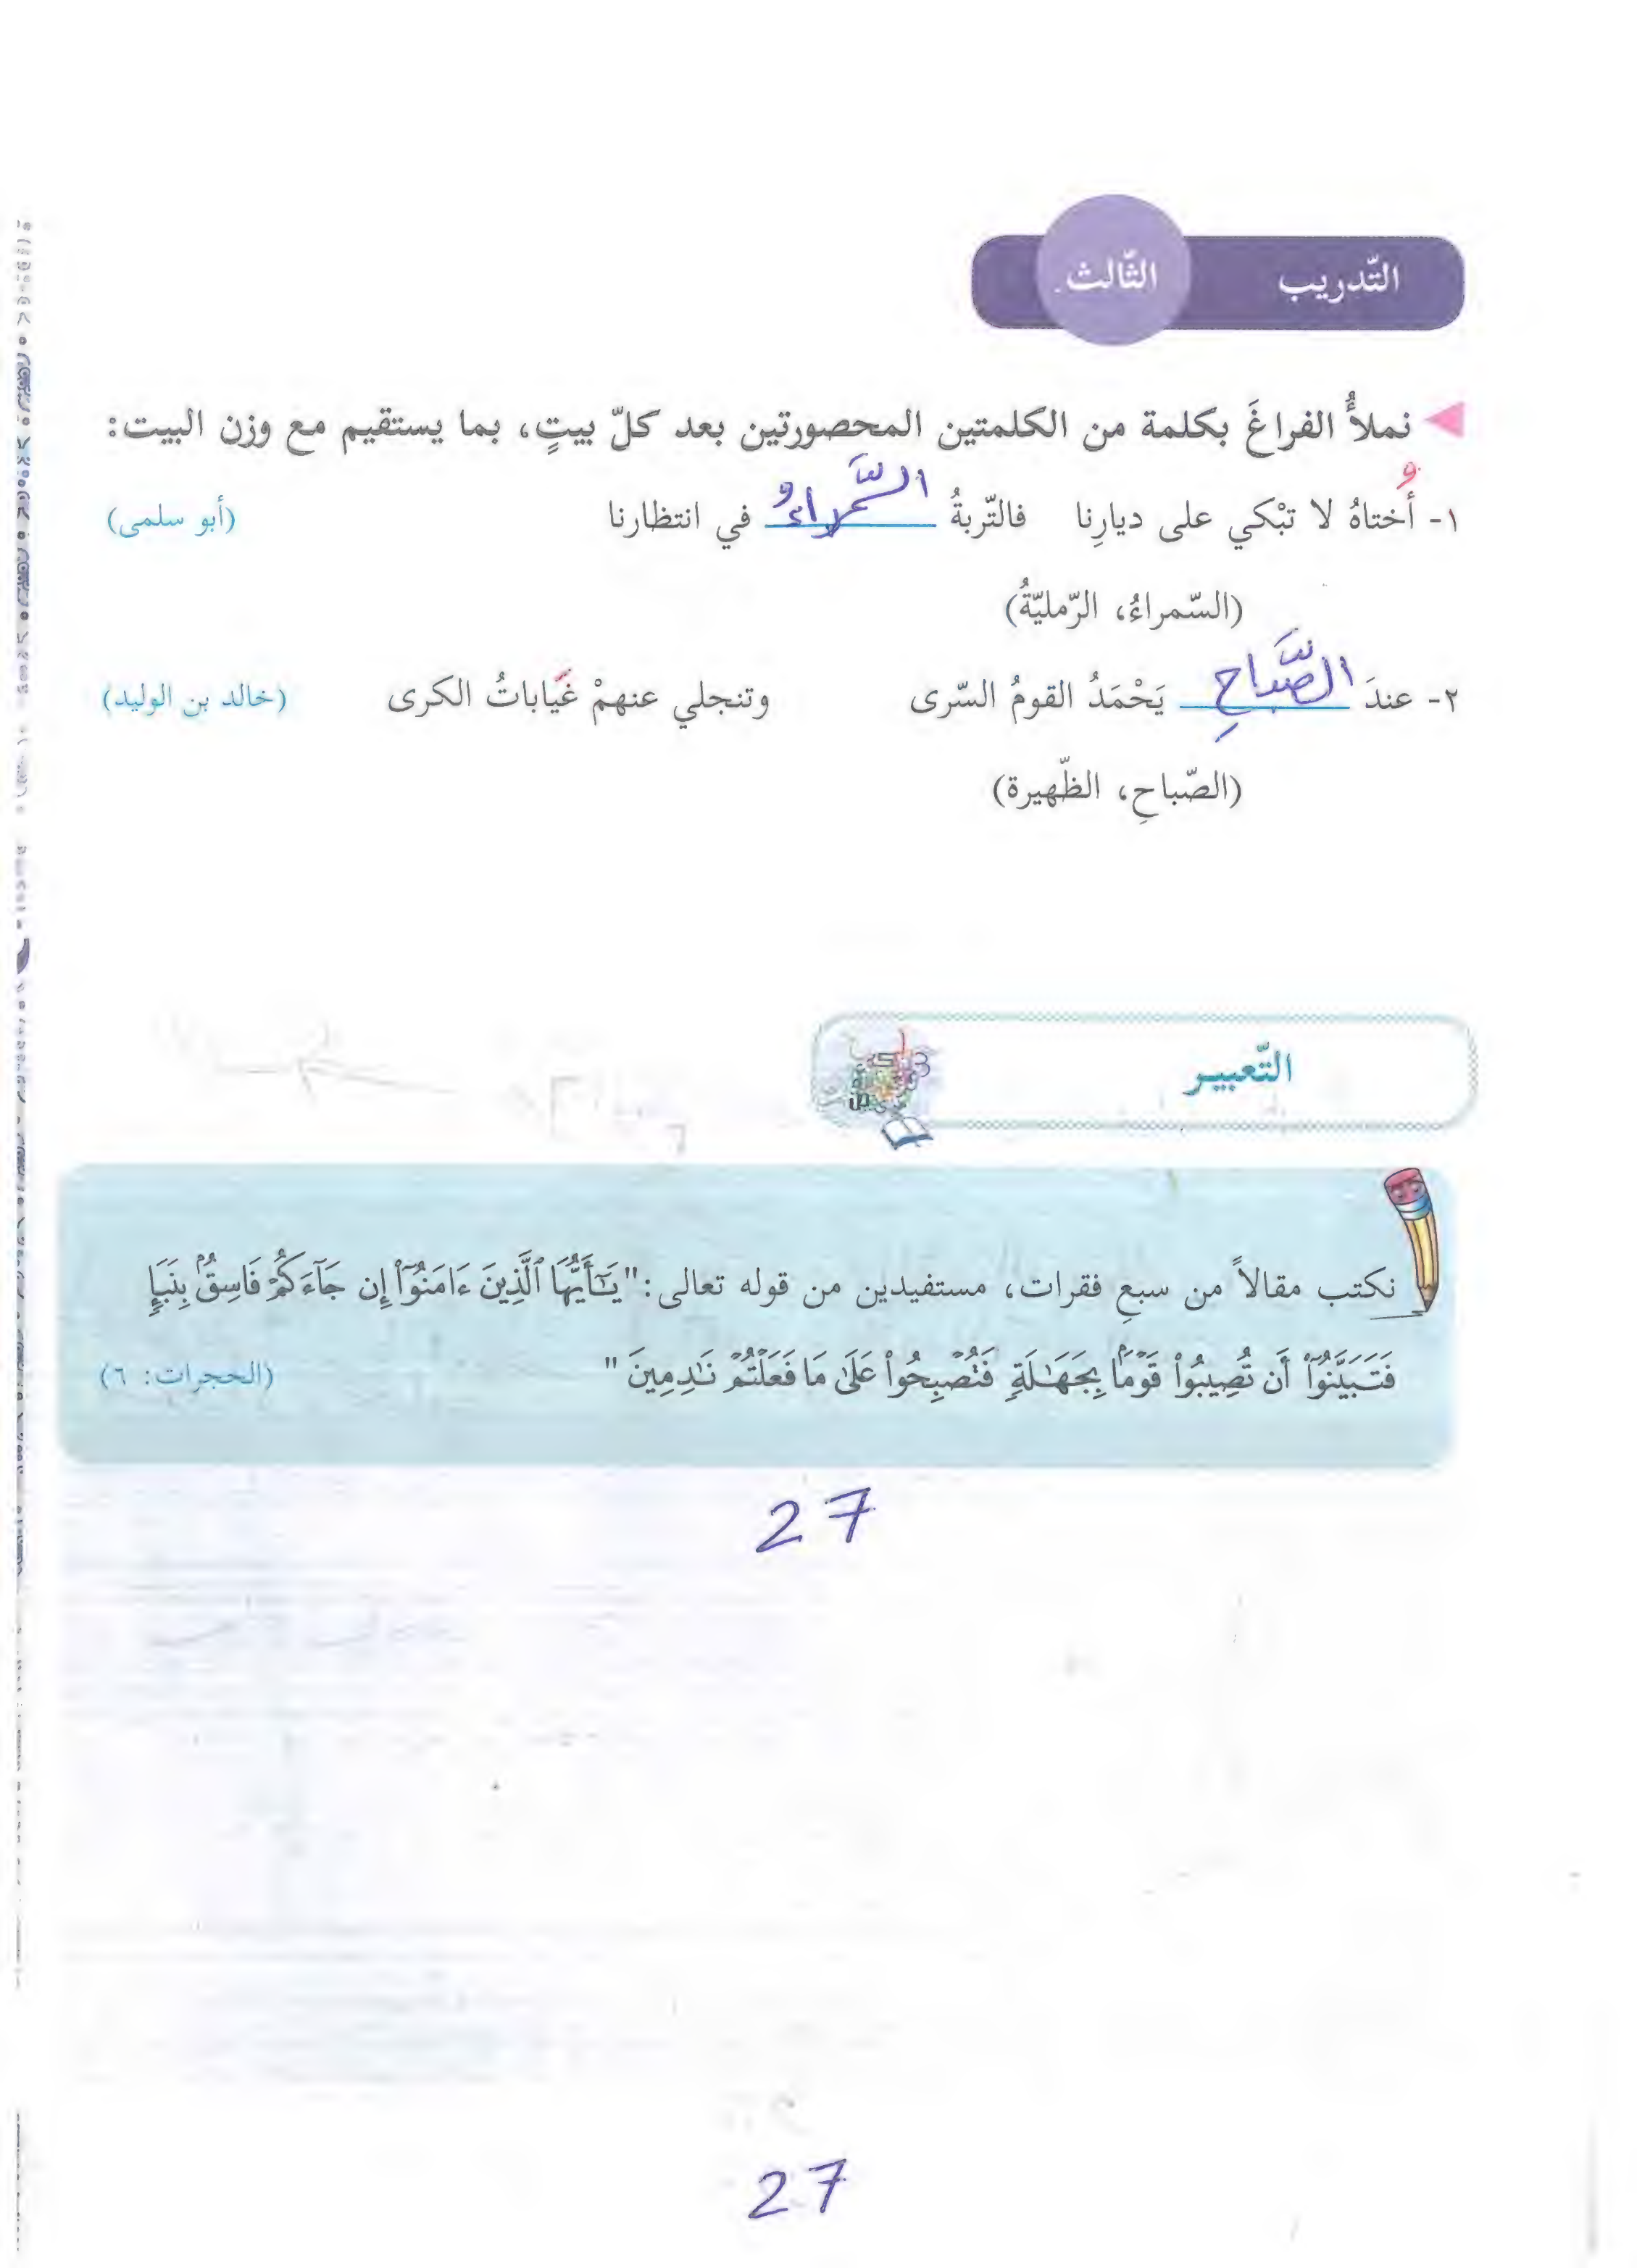 التّدريب الثّالث
نملأُ الفراغَ بكلمة من الكلمتين المحصورتين بعد كلّ بيتٍ، بما يستقيم مع وزن البيت:
١- أُختاهُ لا تبْكي على ديارِنا فالتّربةُ السَّمراءُ في انتظارنا (أبو سلمى)
(السّمراءُ، الرّمليّةُ)
٢- عندَ الصَّباحِ يَحْمَدُ القومُ السّرى وتنجلي عنهمْ غَيّاباتُ الكرى (خالد بن الوليد)
(الصّباحِ، الظّهيرة)
التّعبير
نكتب مقالاً من سبعِ فقرات، مستفيدين من قوله تعالى: "يَٰٓأَيُّهَا ٱلَّذِينَ ءَامَنُوٓا۟ إِن جَآءَكُمْ فَاسِقٌۢ بِنَبَإٍ
فَتَبَيَّنُوٓا۟ أَن تُصِيبُوا۟ قَوْمًۢا بِجَهَٰلَةٍ فَتُصْبِحُوا۟ عَلَىٰ مَا فَعَلْتُمْ نَٰدِمِينَ " (الحجرات: ٦)
27
27